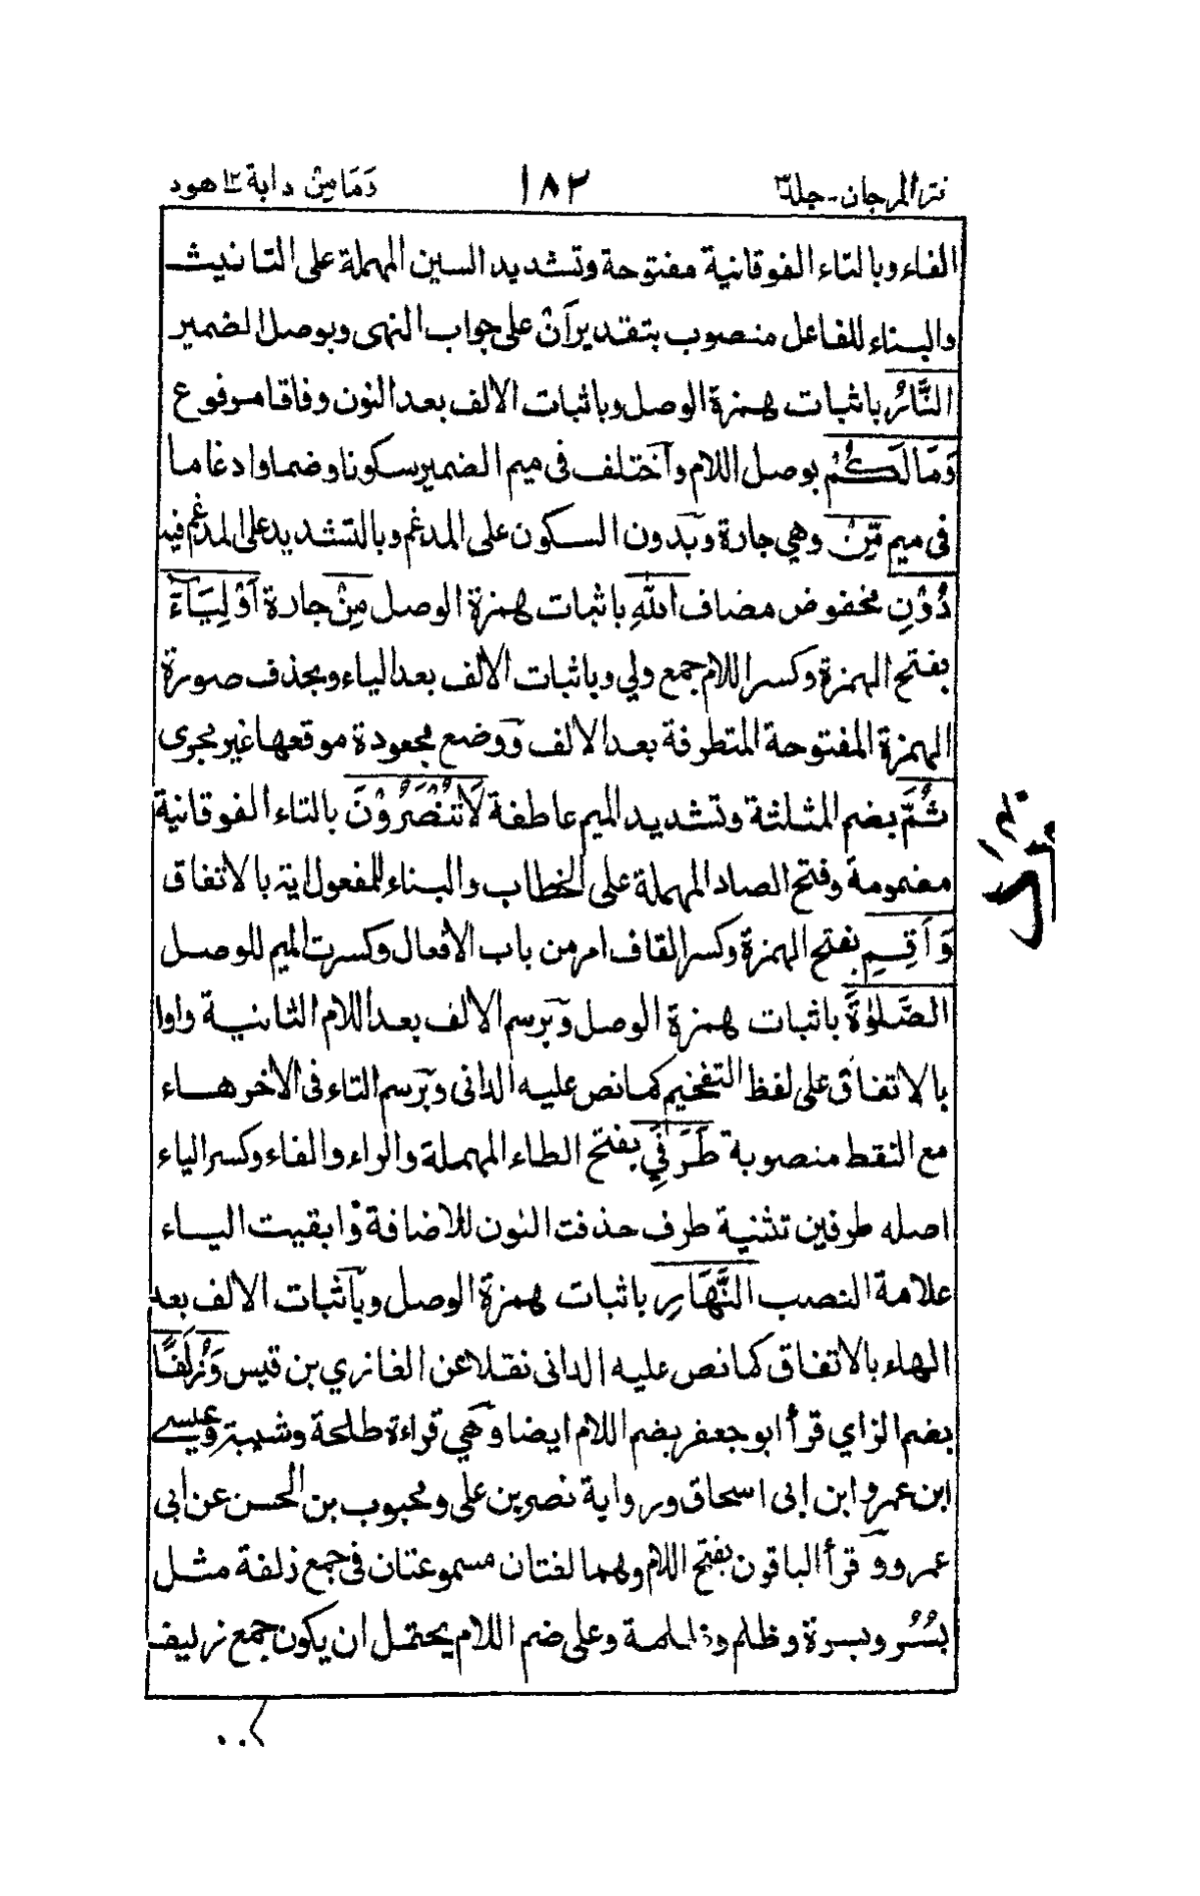 نثر المرجان - جلد٣ ١٨٢ ومامن دابة ١٢ هود
الفاء وبالتاء الفوقانية مفتوحة وتشديد السين المهملة على التانيث
والبناء للفاعل منصوب بتقدير آن على جواب النهى وبوصل الضمير
النَّارُ باثبات همزة الوصل وباثبات الالف بعد النون وفاقا مرفوع
وَمَا لَكُمْ بوصل اللام وآختلف فى ميم الضمير سكونا وضما وادغاما
فى ميم مِّنْ وهي جارة وبَدون السكون على المدغم وبالتشديد على المدغم فيه
دُوْنِ مخفوض مضاف اللهِ باثبات همزة الوصل مِنْ جارة اَوْلِيَآءَ
بفتح الهمزة وكسر اللام جمع ولي وباثبات الالف بعد الياء وبحذف صورة
الهمزة المفتوحة المتطرفة بعد الالف ووضع مجعودة موقعها غير مجرى
ثُمَّ بضم المثلثة وتشديد الميم عاطفة لَا تُنْصَرُوْنَ بالتاء الفوقانية
مضمومة وفتح الصاد المهملة على الخطاب والبناء للمفعول اية بالاتفاق
وَاَقِمِ بفتح الهمزة وكسر القاف امر من باب الافعال وكسرت الميم للوصل
الصَّلٰوةَ باثبات همزة الوصل وبَرسم الالف بعد اللام الثانية واوا
بالاتفاق على لفظ التفخيم كما نص عليه الدانى وبَرسم التاء فى الاخر هاء
مع النقط منصوبة طَرَفَيِ بفتح الطاء المهملة والراء والفاء وكسر الياء
اصله طرفين تثنية طرف حذفت النون للاضافة وابقيت الياء
علامة النصب النَّهَارِ باثبات همزة الوصل وبآثبات الالف بعد
الهاء بالاتفاق كما نص عليه الدانى نقلا عن الغازي بن قيس وَزُلَفًا
بضم الزاي قرأ ابو جعفر بضم اللام ايضا وهَي قراءة طلحة وشيبة وعيسے
ابن عمر وابن إبى اسحاق ورواية نصر بن على ومحبوب بن الحسن عن ابى
عمرو وَقرأ الباقون بفتح اللام وهما لغتان مسموعتان فى جمع زلفة مثل
بُسُر وبسرة وظلم وظلمة وعلى ضم اللام يحتمل ان يكون جمع زليف